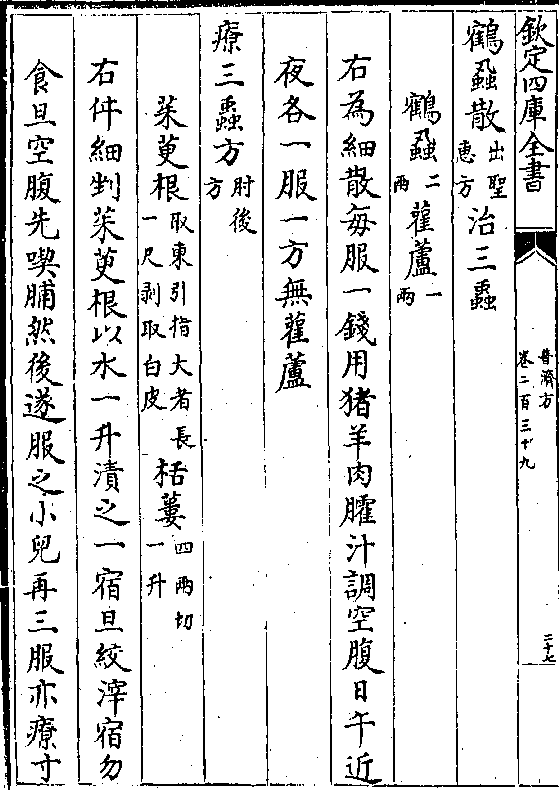 欽定四庫全書
普濟方
卷二百三十九
二十七
鶴蝨散出聖惠方治三蟲
鶴蝨二兩雚蘆一兩
右為細散每服一錢用猪羊肉臛汁調空腹日午近
夜各一服一方無雚蘆
療三蟲方肘後方
茱萸根取東引指大者長一尺剥取白皮栝蔞四兩切一升
右件細剉茱萸根以水一升漬之一宿旦絞滓宿勿
食旦空腹先喫脯然後遂服之小兒再三服亦療寸